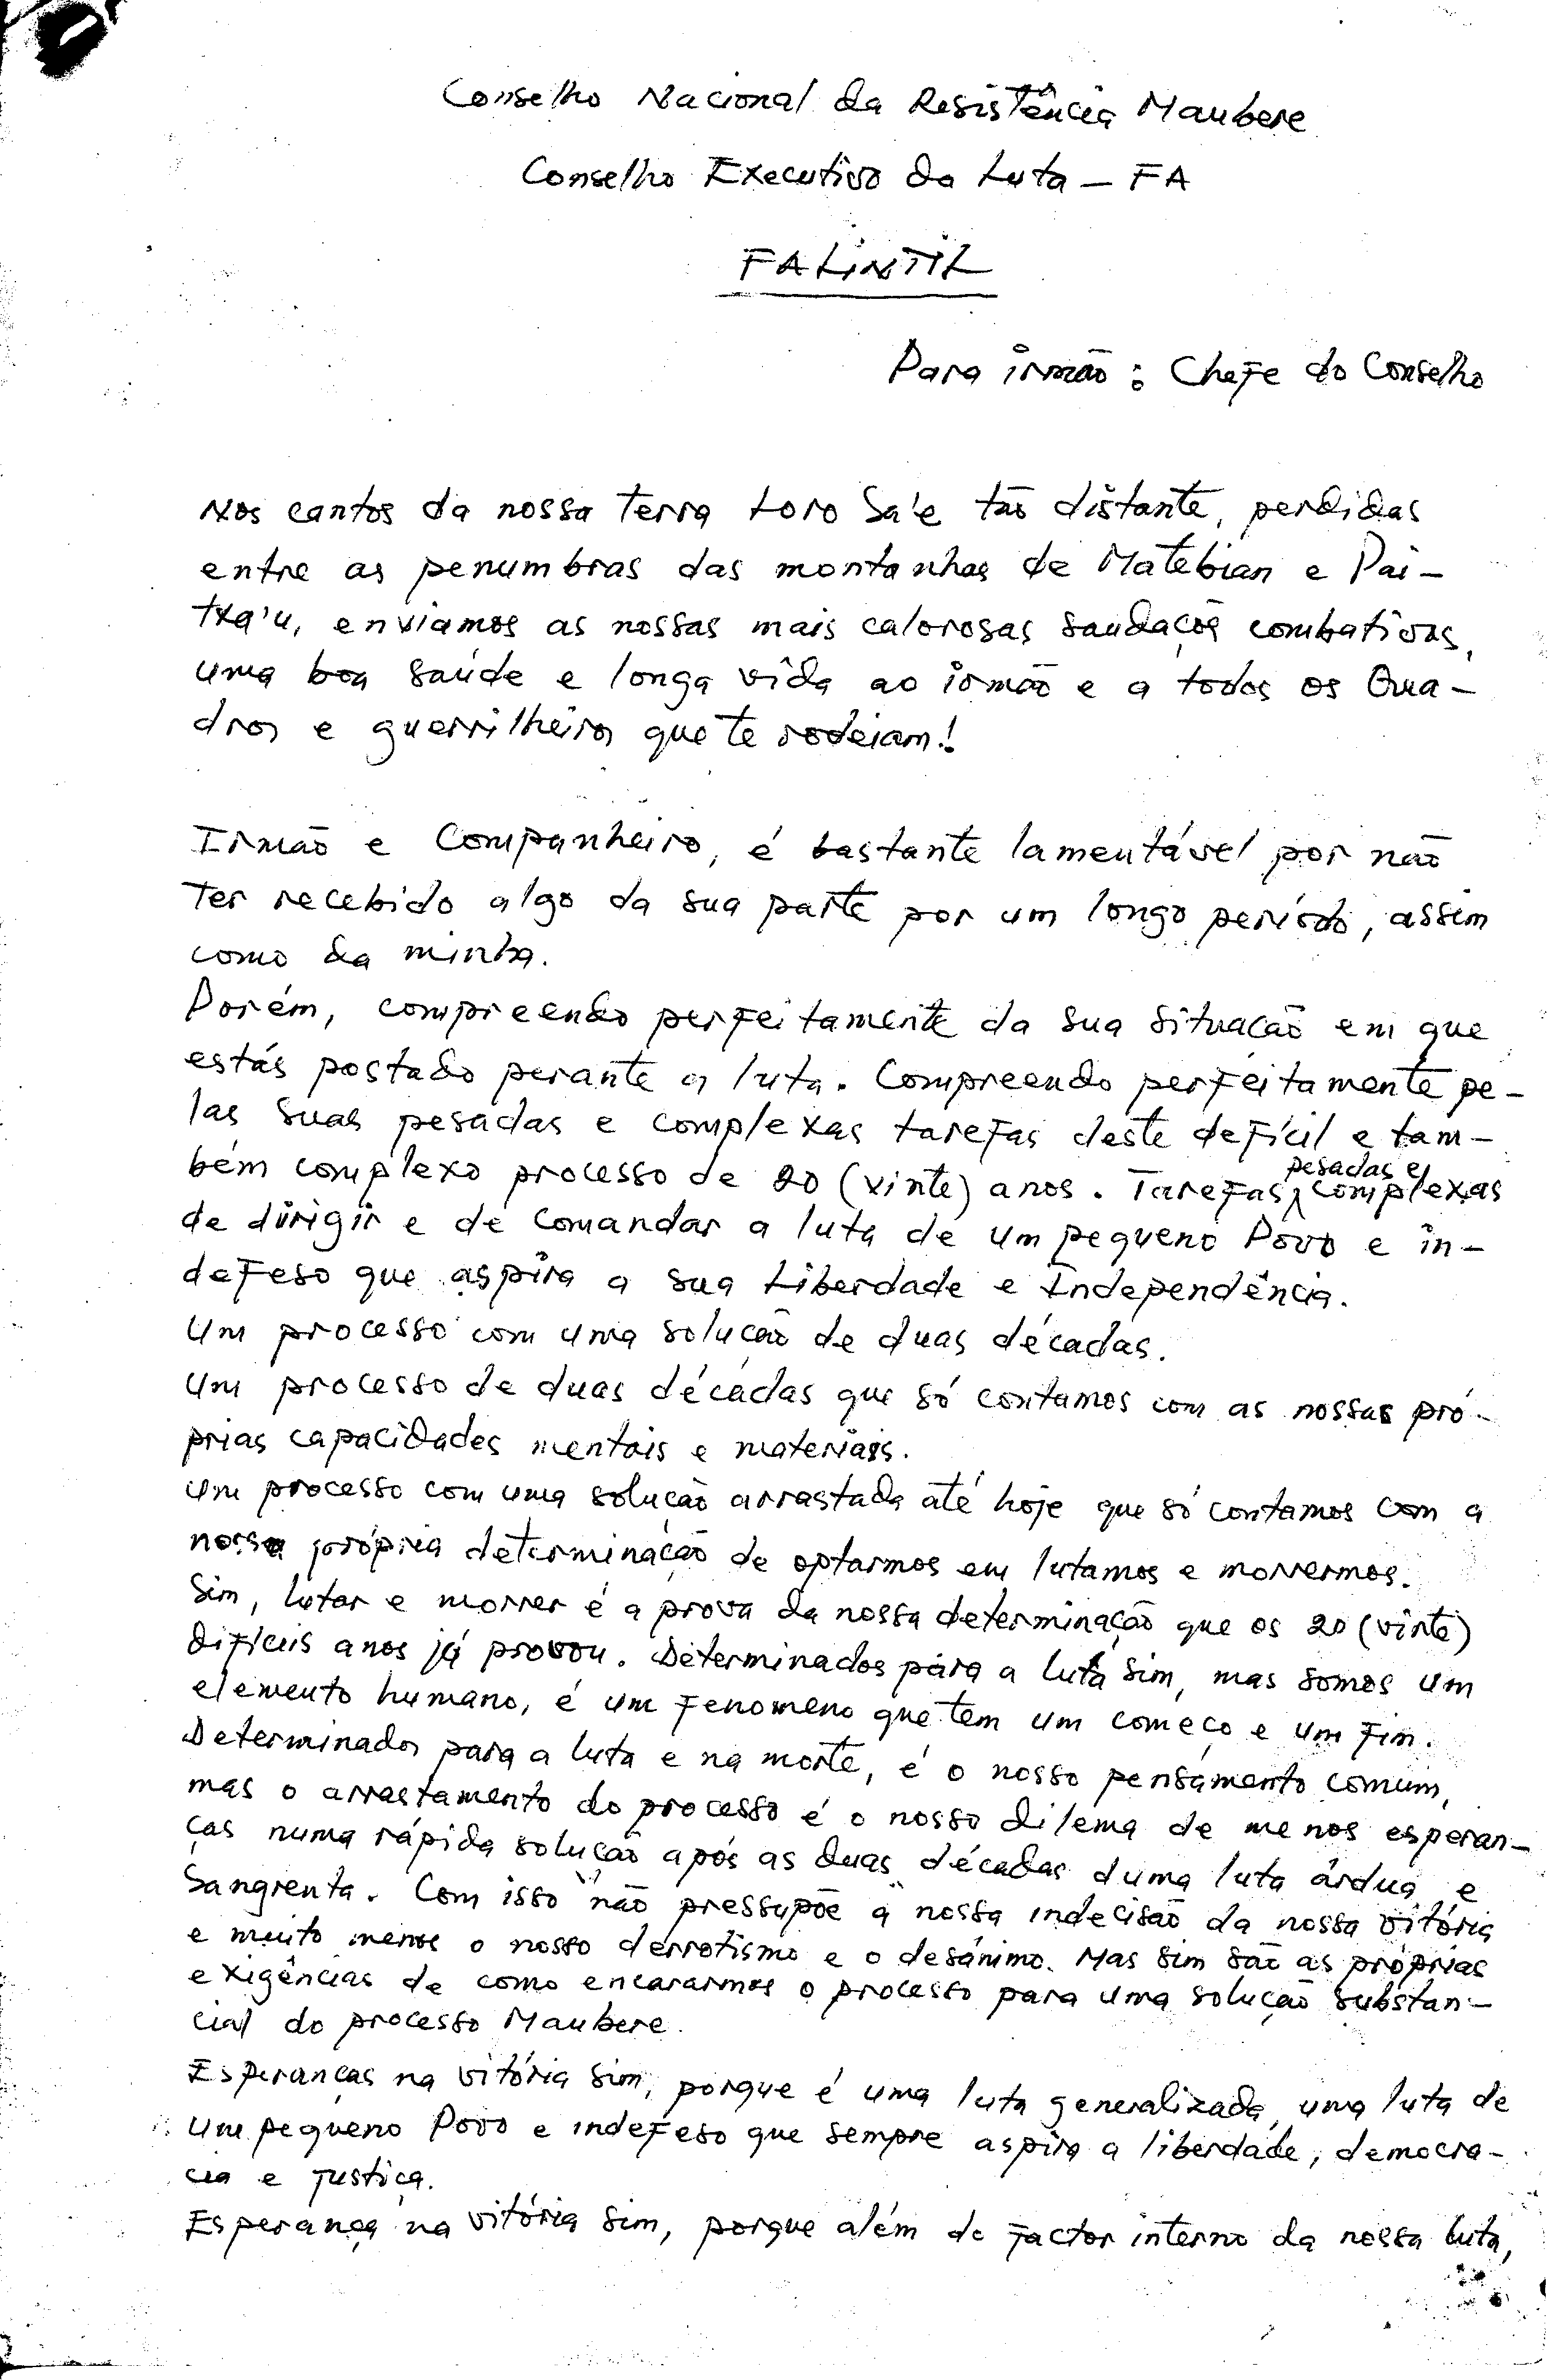 Conselho Nacional da Resistência Maubere
Conselho Executivo da Luta – FA
FALINTIL
Para irmão : Chefe do Conselho
Nos cantos da nossa terra Loro Sa'e tão distante, perdidas
entre as penumbras das montanhas de Matebian e Pai-
txa'u, enviamos as nossas mais calorosas saudações combativas,
uma boa saúde e longa vida ao irmão e a todos os Qua-
dros e guerrilheiros que te rodeiam!
Irmão e Companheiro, é bastante lamentável por não
ter recebido algo da sua parte por um longo período, assim
como da minha.
Porém, compreendo perfeitamente da sua situação em que
estás postado perante a luta. Compreendo perfeitamente pe-
las suas pesadas e complexas tarefas deste defícil e tam-
bém complexo processo de 20 (vinte) anos. Tarefas pesadas e complexas
de dirigir e de comandar a luta de um pequeno Povo e in-
defeso que aspira a sua Liberdade e Independência.
Um processo com uma solução de duas décadas.
Um processo de duas décadas que só contamos com as nossas pró-
prias capacidades mentais e materiais.
Um processo com uma solução arrastada até hoje que só contamos com a
nossa própria determinação de optarmos em lutamos e morrermos.
Sim, lutar e morrer é a prova da nossa determinação que os 20 (vinte)
difíceis anos já provou. Determinados para a luta sim, mas somos um
elemento humano, é um fenomeno que tem um começo e um fim.
Determinados para a luta e na morte, é o nosso pensamento comum,
mas o arrastamento do processo é o nosso dilema de menos esperan-
ças numa rápida solução após as duas décadas duma luta árdua e
sangrenta. Com isso não pressupõe a nossa indecisão da nossa vitória
e muito menos o nosso derrotismo e o desánimo. Mas sim são as próprias
exigências de como encararmos o processo para uma solução substan-
cial do processo Maubere.
Esperanças na vitória sim, porque é uma luta generalizada, uma luta de
um pequeno Povo e indefeso que sempre aspira a liberdade, democra-
cia e justiça.
Esperança na vitória sim, porque além do factor interno da nossa luta,